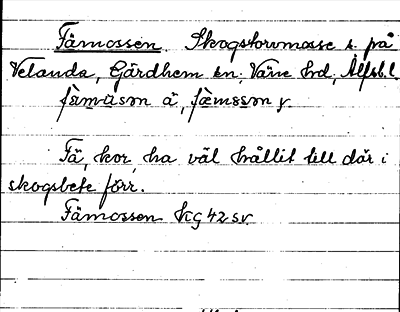 Fämossen Skogstorvmosse s. på
Velanda, Gärdhem sn, Väne hd, Älfsb. l.
fä̀mùsən ä, fæ̀mɞsən y.
Fä, kor, ha väl hållit till där i
skogsbete förr.
Fämossen KG 42 sv.